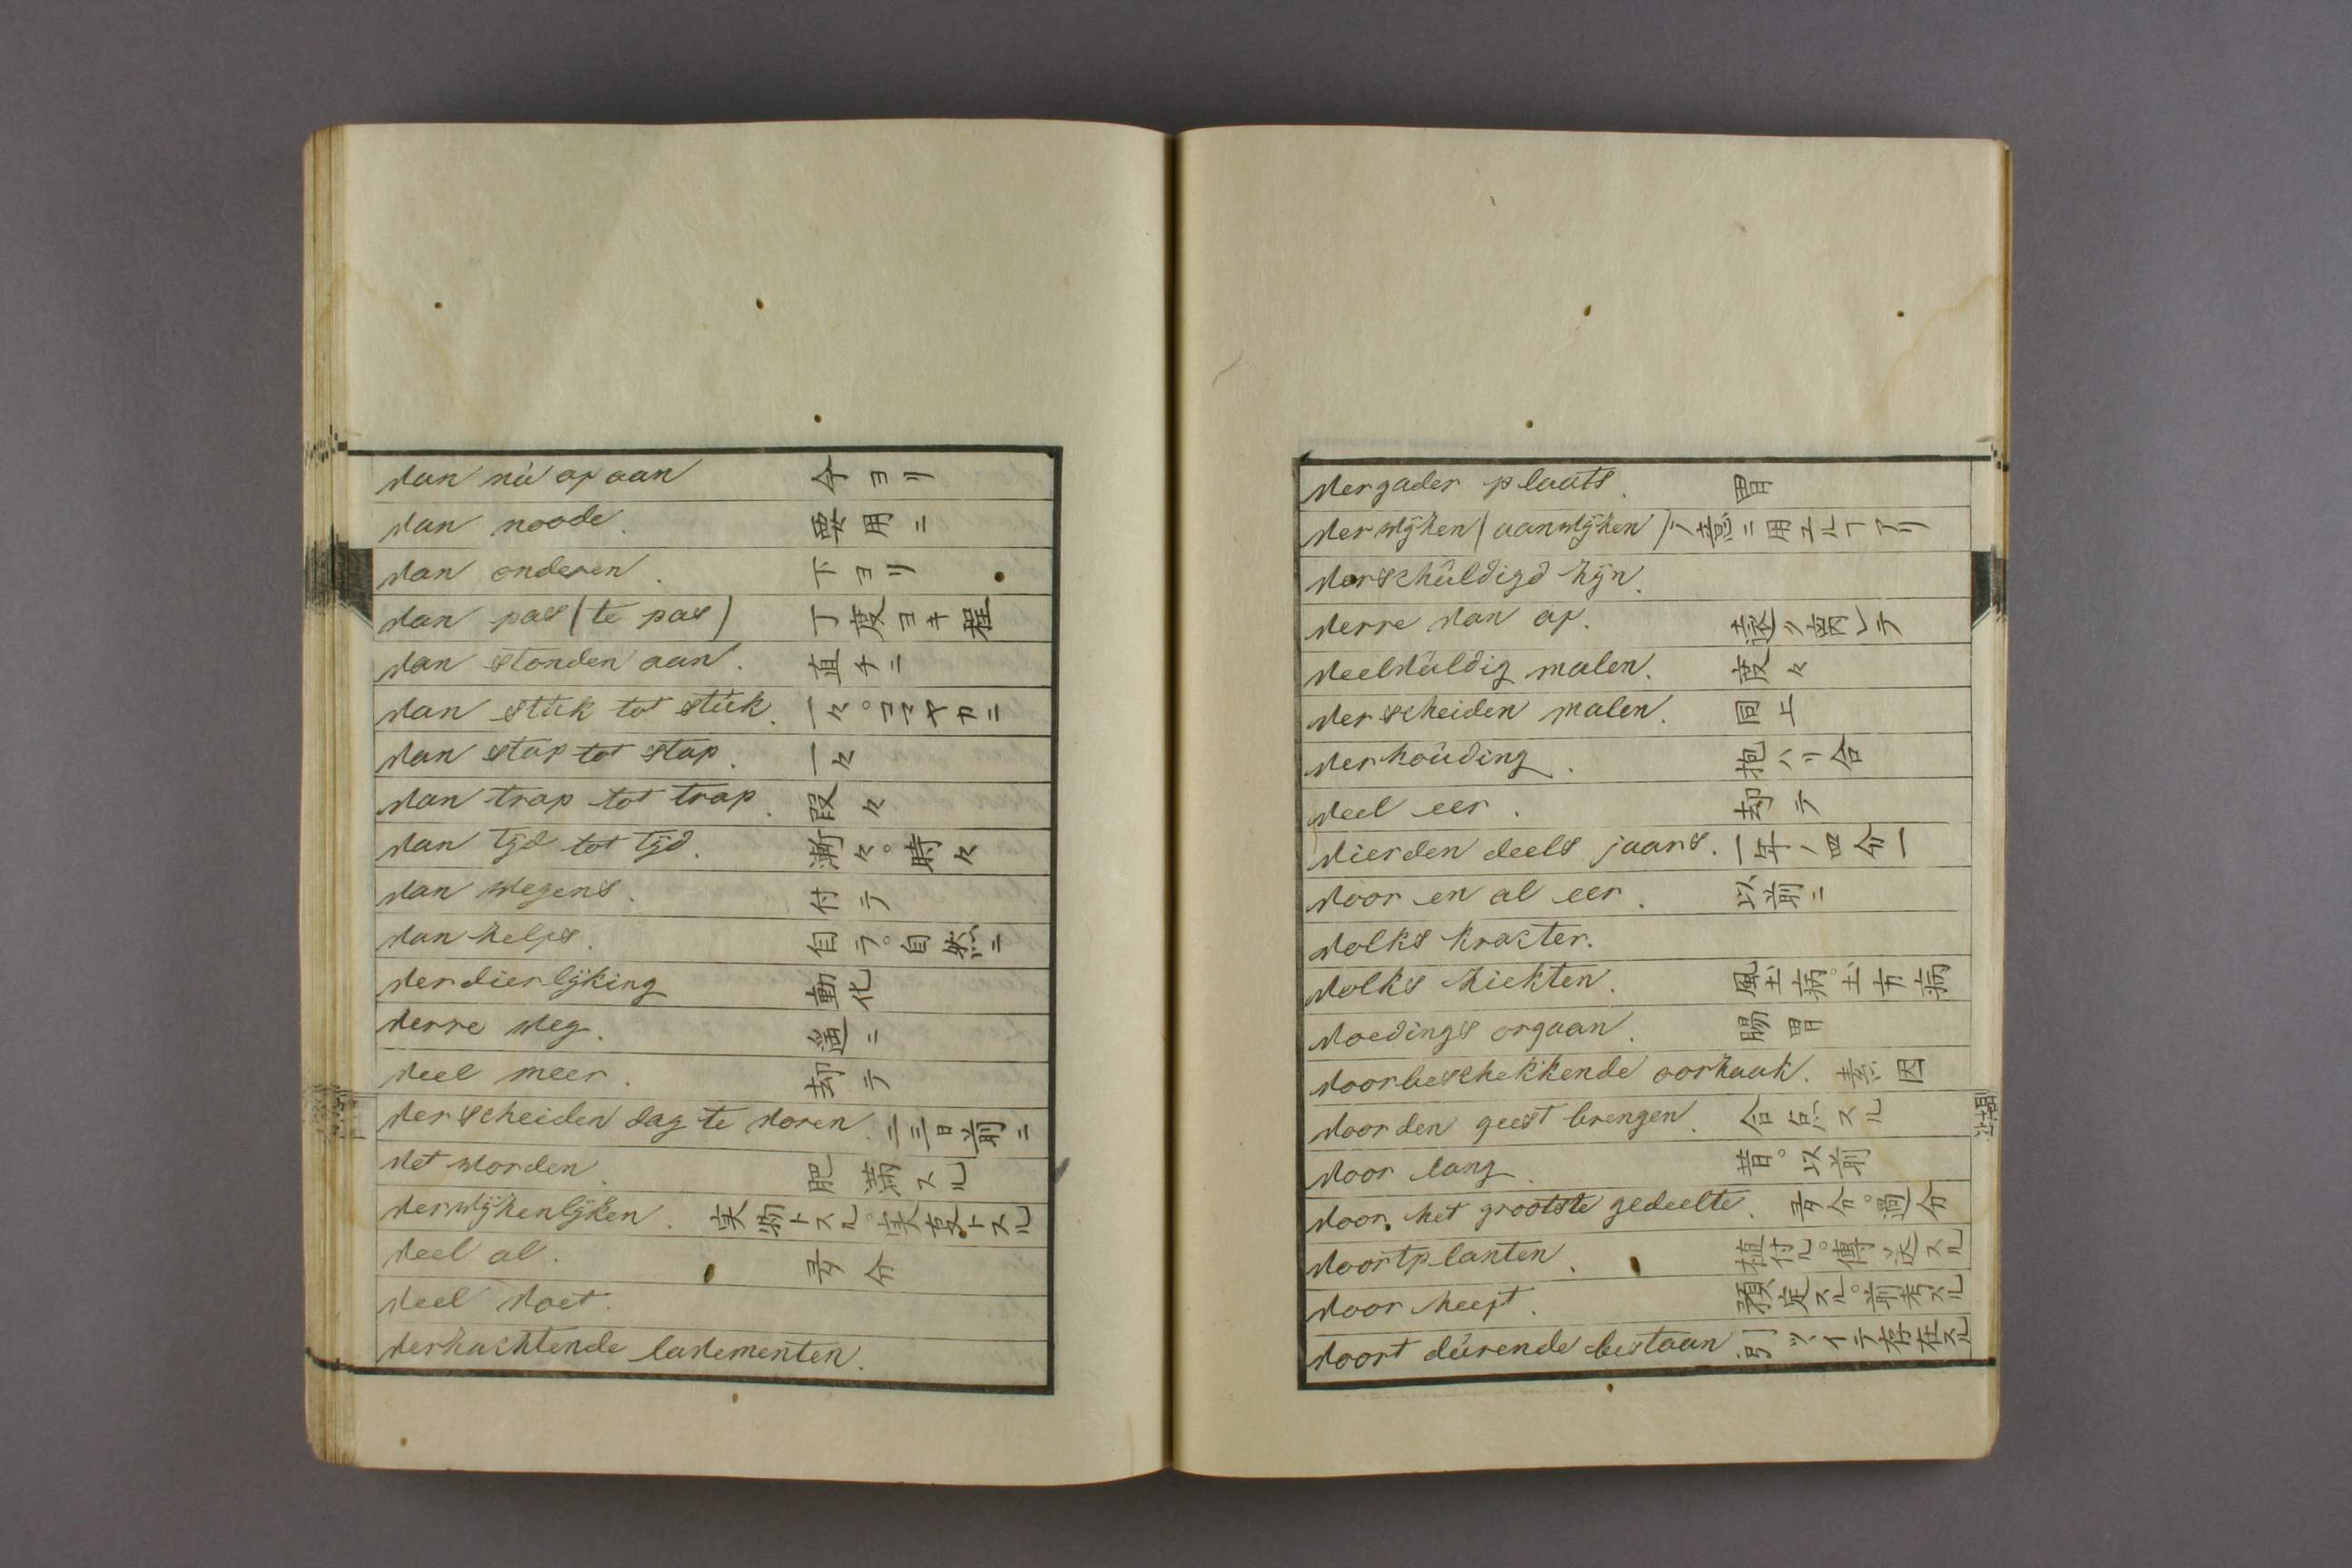 van nù af aan 今ヨリ
van noode. 要用ニ
van onderen. 下ヨリ
van pas (te pas) 丁度ヨキ程
van stonden aan. 直チニ
van stùk tot stùk. 一々。コマヤカニ
van stap tot stap. 一々
van trap tot trap. 段々
van tÿd tot tÿd. 漸々。時々
van wegens. 付テ
van zelfs. 自ラ。自然ニ
verdierlÿking 動化
verre weg.
veel meer. 却テ
verscheiden dag te voren. 二三日前ニ
vet worden. 肥満スル
verwÿzenlÿken.
veel al. 多分
veel voet.
verzachtende lavementen.
vergader plaats. 胃
verwÿzen (aanwÿzen) ノ意ニ用ユルヿアリ
verschùldigd zÿn.
verre van af. 遠ク離レテ
veelvùldig malen. 度々
verscheiden malen. 同上
verhoùding. 抱ハリ合
veel eer. 却テ
vierden deels jaars. 一年ノ四分一
voor en al eer. 以前ニ
volks kracter.
volks ziekten. 風土病。土方病
voedings orgaan. 腸胃
voorbeschekkende oorzaak. 素因
voor den geest brengen. 合点スル
voor lang. 昔。以前
voor het grootste gedeelte. 多分。過分
voortplanten. 植付ル。傳送スル
voor heeft. 預定スル。前考スル
voort dùrende bestaan 引ツヾイテ存在スル